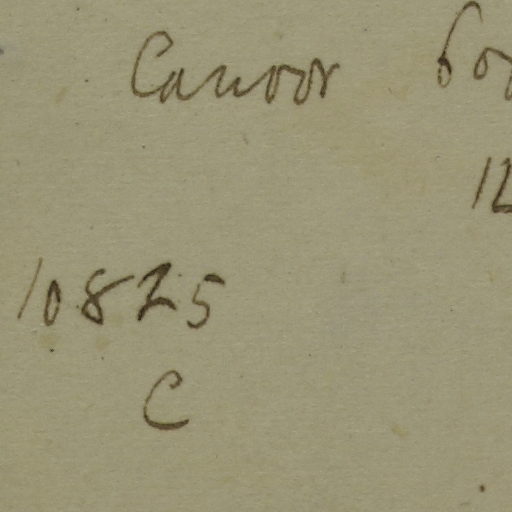 Canoor
12
10825
C